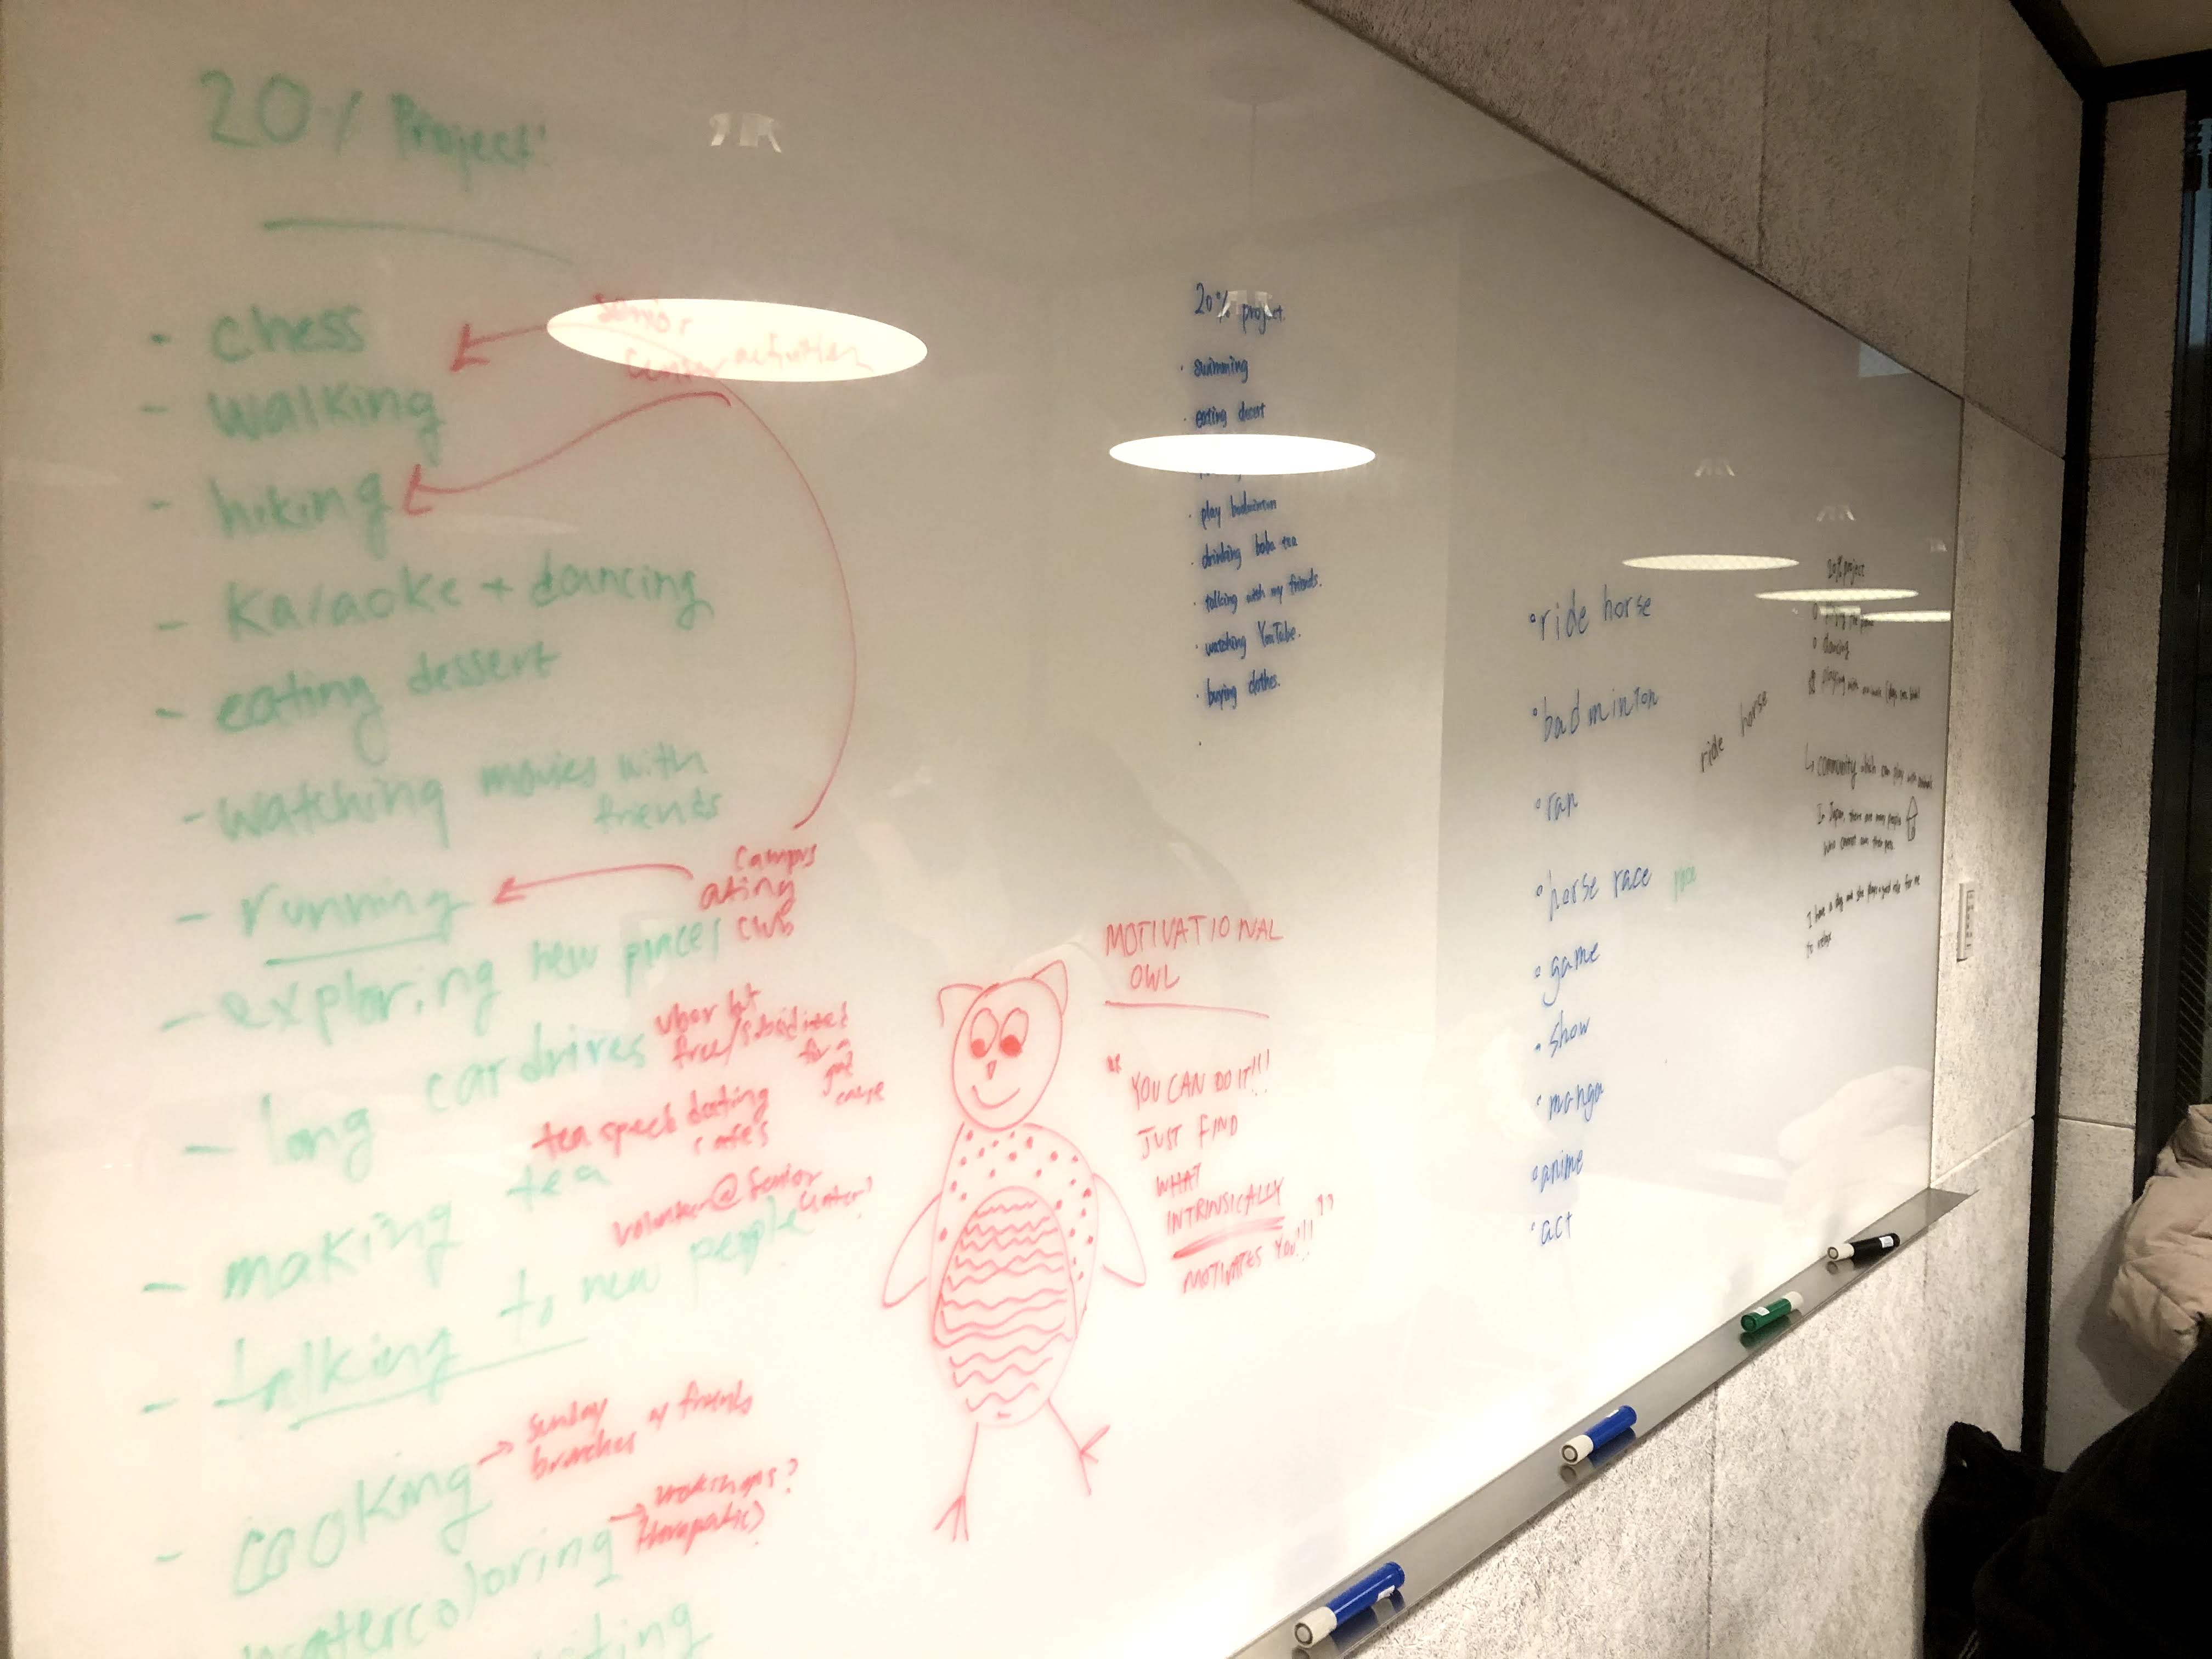 20% Project
- chess
- walking
- hiking
- karaoke + dancing
- eating dessert
- watching movies with
friends
- running
- exploring new places
- long car drives
- making tea
- talking to new people
- cooking
watercoloring
senior
center activities
campus
club
free/subsidized
for a
tea speed dating
cafes
volunteer @ senior
center?
→ Sunday
brunches w/ friends
→ workshops?
MOTIVATIONAL
OWL
"YOU CAN DO IT!!!
JUST FIND
WHAT
INTRINSICALLY
MOTIVATES YOU!!!"
20% project
· swimming
· eating desert
· play badminton
· drinking boba tea
· talking with my friends.
· watching YouTube.
· buying clothes.
·
°ride horse
°badminton
°ran
°horse race
°game
· show
· manga
°anime
°act
ride horse
20% project
○ dancing
↳ community which can play with
In Japan, there are many people
who cannot own their pets
I have a dog and she plays a good role for me
to relax